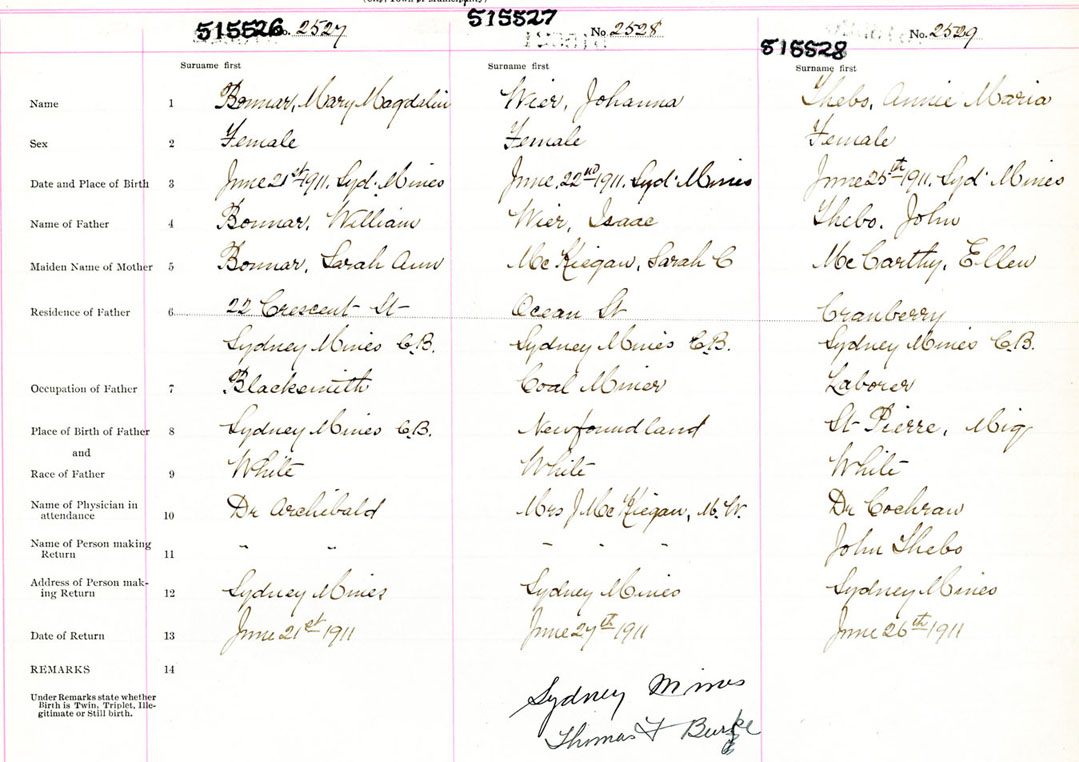 515526 No. 2527 515527 No. 2528 515528 No. 2529
Surname first Surname first Surname first
Name 1 Bonnar, Mary Magdalin Wier, Johanna Shebo, Annie Maria
Sex 2 Female Female Female
Date and Place of Birth 3 June 21st 1911. Syd. Mines June, 22nd 1911. Syd. Mines June 25th 1911. Syd. Mines
Name of Father 4 Bonnar, William Wier, Isaac Shebo. John
Maiden Name of Mother 5 Bonnar, Sarah Ann McKiegan, Sarah C McCarthy, Ellen
Residence of Father 6 22 Crescent St Ocean St Cranberry
Sydney Mines C.B. Sydney Mines C.B. Sydney Mines C.B.
Occupation of Father 7 Blacksmith Coal Miner Laborer
Place of Birth of Father 8 Sydney Mines C.B. Newfoundland St Pierre, Miq
and
Race of Father 9 White White White
Name of Physician in
attendance 10 Dr Archibald Mrs J McKiegan, M.W. Dr Cochran
Name of Person making
Return 11 " " " " " John Shebo
Address of Person mak-
ing Return 12 Sydney Mines Sydney Mines Sydney Mines
Date of Return 13 June 21st 1911 June 27th 1911 June 26th 1911
REMARKS 14
Under Remarks state whether
Birth is Twin, Triplet, Ille-
gitimate or Still birth.
Sydney Mines
Thomas F Burke